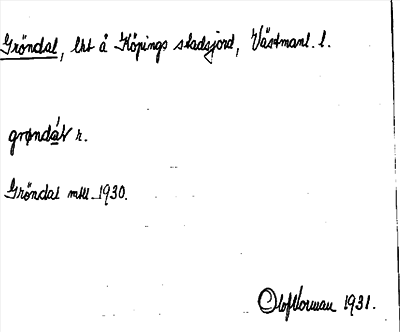 Gröndal, lht å Köpings stadsjord, Västmanl. l.
grøndáɫ r.
Gröndal mtl. 1930.
Olof Norman 1931.